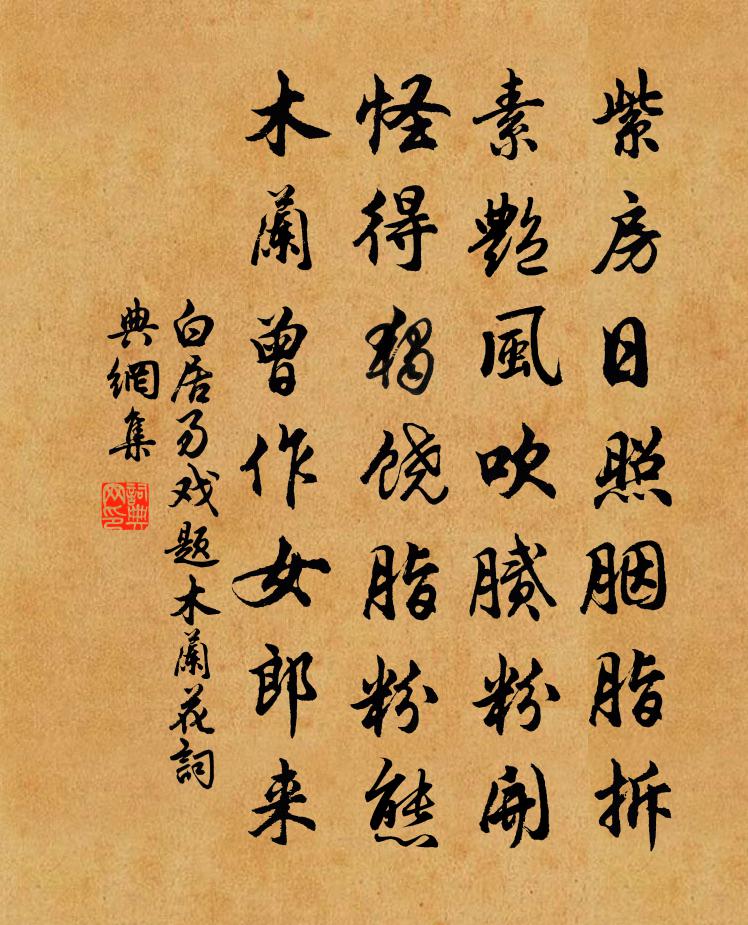 紫房日照胭脂拆
素艷風吹膩粉開
怪得獨饶脂粉態
木蘭曾作女郎来
白居易戏题木蘭花詞
典網集
詞典
网印